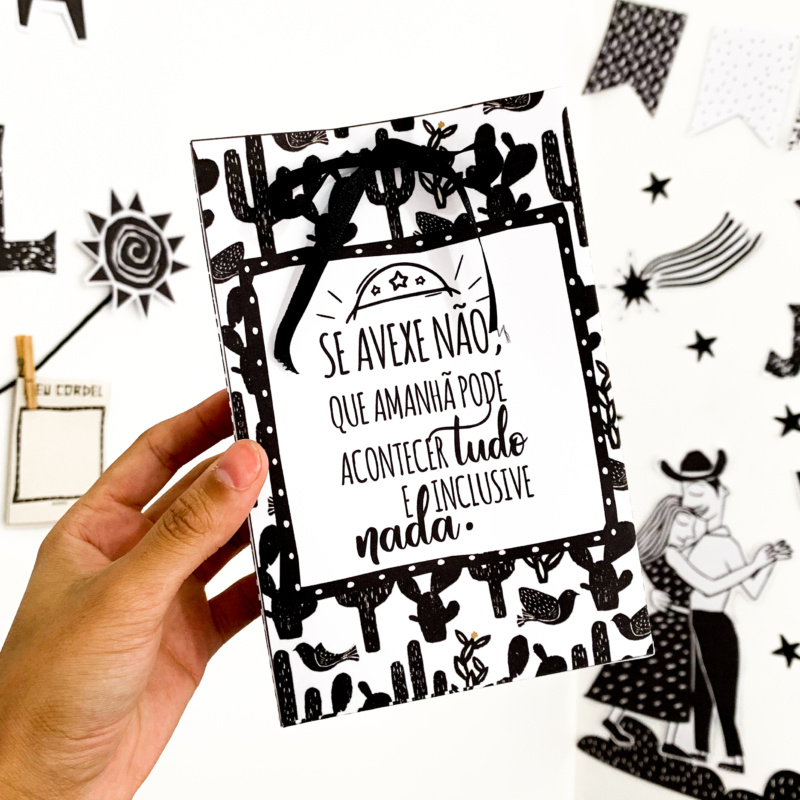 SE AVEXE NÃO,
QUE AMANHÃ PODE
ACONTECER tudo
E INCLUSIVE
nada.
EU CORDEL